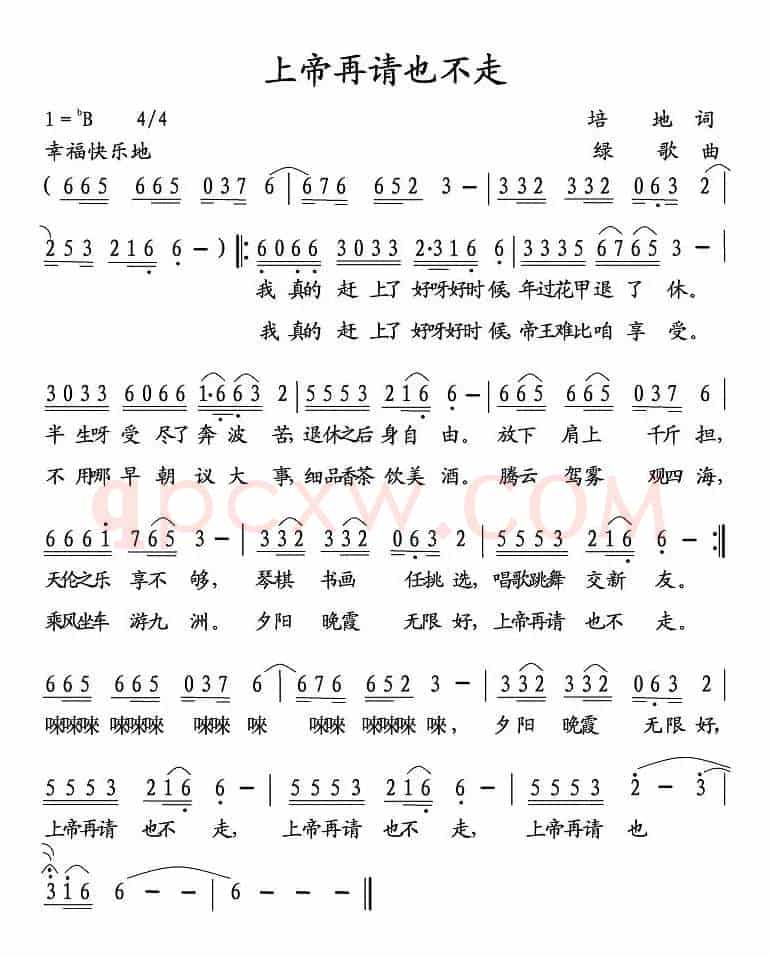 上帝再请也不走
1=ᵇB 4/4 培 地 词
幸福快乐地 绿 歌 曲
( 665 665 037 6 | 676 652 3 - | 332 332 063 2 |
253 216 6 - ) ‖: 6066 3033 2·316 6 | 3335 6765 3 - |
我 真的 赶 上了 好呀好时 候, 年过花甲 退 了 休。
我 真的 赶 上了 好呀好时 候, 帝王难比 咱 享 受。
3033 6066 1·663 2 | 5553 216 6 - | 665 665 037 6 |
半 生呀 受 尽了 奔 波 苦, 退休之后 身自 由。 放下 肩上 千斤 担,
不 用哪 早 朝 议 大 事, 细品香茶 饮美 酒。 腾云 驾雾 观四 海,
qpcxw.COM
6661 765 3 - | 332 332 063 2 | 5553 216 6 - :‖
天伦之乐 享不 够, 琴棋 书画 任挑 选, 唱歌跳舞 交新 友。
乘风坐车 游九 洲。 夕阳 晚霞 无限 好, 上帝再请 也不 走。
665 665 037 6 | 676 652 3 - | 332 332 063 2 |
唻唻唻 唻唻唻 唻唻 唻 唻唻唻 唻唻唻 唻, 夕阳 晚霞 无限 好,
5553 216 6 - | 5553 216 6 - | 5553 2 - 3 |
上帝再请 也不 走, 上帝再请 也不 走, 上帝再请 也
316 6 - - | 6 - - ‖